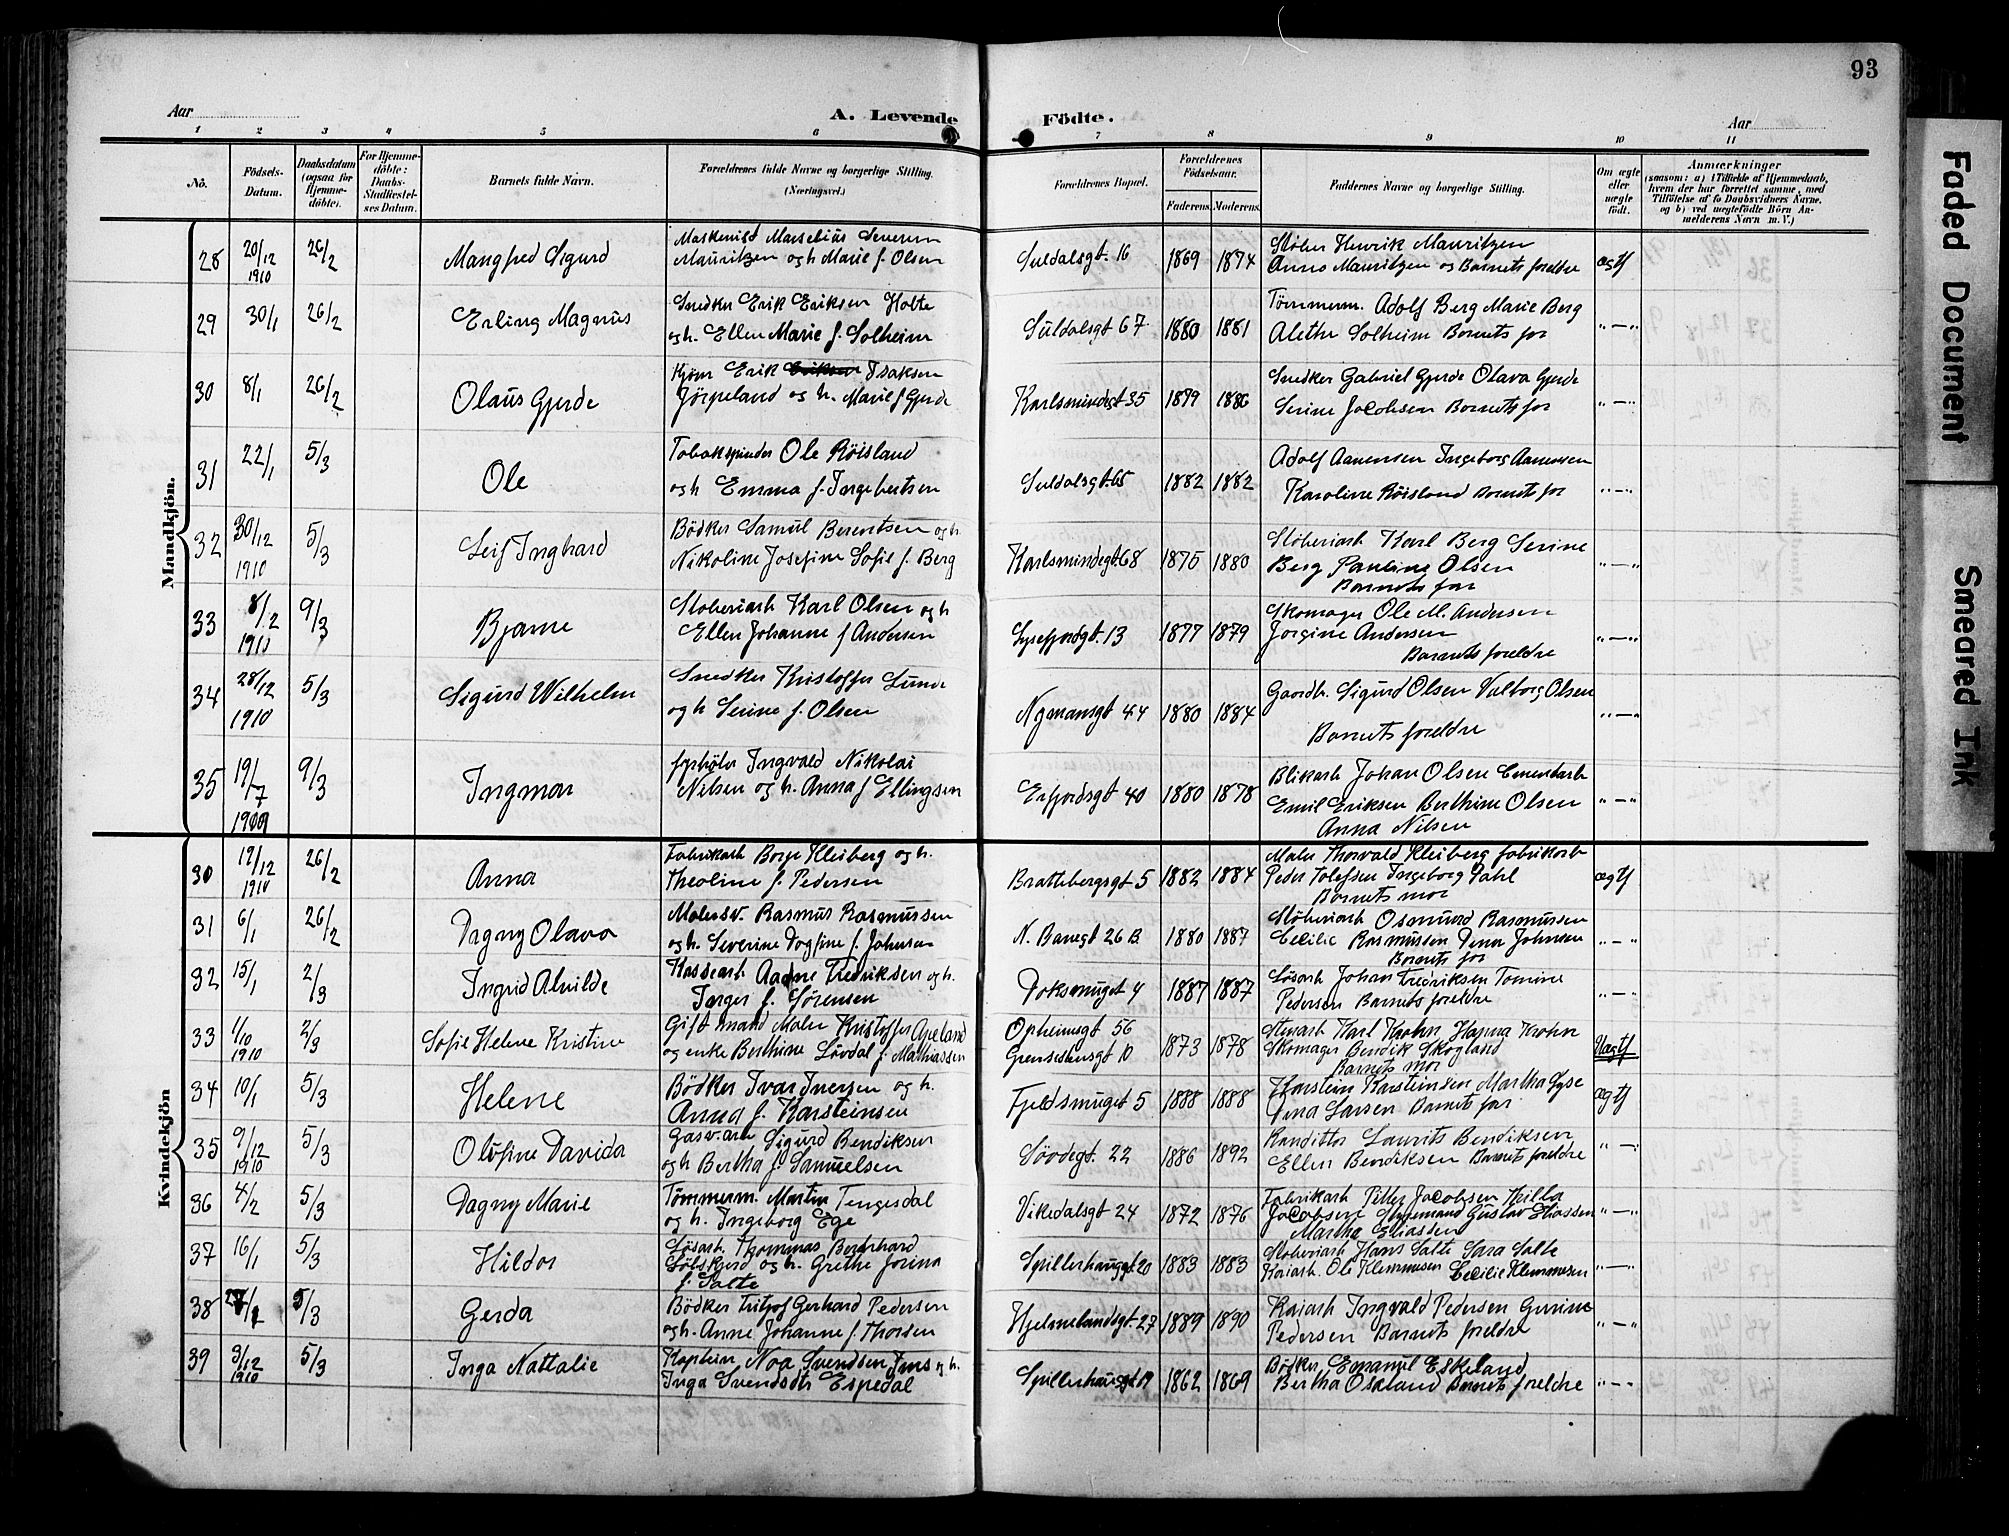 93
Aar
A. Levende
Födte.
Aar
1 2 3 4 5 6 7 8 9 10 11
No.
Födsels-Datum.
Daabsdatum (ogsaa for Hjemme-döbte).
For Hjemme-döbte: Daabs-Stadfæstel-ses Datum.
Barnets fulde Navn.
Forældrenes fulde Navne og borgerlige Stilling. (Næringsvei.)
Forældrenes Bopæl.
Forældrenes Födselsaar.
Faderens. Moderens.
Faddernes Navne og borgerlige Stilling.
Om ægte eller uægte födt.
Anmærkninger
(saasom: a) i Tilfælde af Hjemmedaab, hvem der har forrettet samme, med Tilföielse af to Daabsvidners Navne, og b) ved uægtefödte Börn Anmelderens Navn m. V.)
Mandkjön.
28 20/12 1910 26/2 Mangfred Sigurd Maskenist Marselius Severin Mauritzen og h Marie f. Olsen Suldalsgt. 16 1869 1874 Støber Henrik Mauritzen Anna Mauritzen og Barnets foreldre ægtf
29 30/1 26/2 Erling Magnus Snedker Erik Eriksen Holte og h. Ellen Marie f. Solheim Suldalsgt 67 1880 1881 Tømmerm. Adolf Berg Marie Berg Alethe Solheim Barnets far "—"
30 8/1 26/2 Olaus Gjerde Erik Isaksen Jørpeland og h. Marie f Gjerde Karlsmindegt 35 1879 1886 Snedker Gabriel Gjerde Olava Gjerde Serine Jacobsen Barnets far "—"
31 22/1 5/3 Ole Tobakspinder Ole Röisland og h Emma f. Ingebertsen Suldalsgt. 65 1882 1882 Adolf Aanensen Ingeborg Aanensen Karoline Röisland Barnets far "—"
32 30/12 1910 5/3 Leif Inghard Bödker Samuel Berentsen og h. Nikoline Josefine Sofie f. Berg Karlsmindegt. 68 1875 1880 Støberiarb Karl Berg Serine Berg Pauline Olsen Barnets far "—"
33 8/12 1910 9/3 Bjarne Støberiarb Karl Olsen og h Ellen Johanne f Andersen Lysefjordgt. 13 1877 1879 Skomager Ole M. Andersen Jorgine Andersen Barnets foreldre "—"
34 28/12 1910 5/3 Sigurd Wilhelm Snedker Kristoffer Lunde og h Serine f. Olsen Nymansgt 44 1880 1884 Gaardb. Sigurd Olsen Valborg Olsen Barnets foreldre "—"
35 19/7 1909 9/3 Ingmar fyrbøter Ingvald Nikolai Nilsen og h. Anna f Ellingsen Erfjordsgt 40 1880 1878 Blikarb Johan Olsen Cementarb Emil Eriksen Berthine Olsen Anna Nilsen "—"
Kvindekjön
30 12/12 1910 26/2 Anna Fabrikarb Borge Kleiberg og h. Theoline f. Pedersen Brattebergsgt 5 1882 1884 Maler Thorvald Kleiberg fabrikarb Peder Tolefsen Ingeborg Dahl Barnets mor ægtf
31 6/1 26/2 Dagny Olava Malersv. Rasmus Rasmussen og h. Severine Dogfine f. Johnsen N. Banegt 26 B. 1880 1887 Støberiarb Osmund Rasmussen Cecilie Rasmussen Dina Johnsen Barnets far "—"
32 15/1 2/3 Ingrid Alvilde Kassearb Aadne Fredriksen og h. Inger f. Sörensen Doksmuget 4 1887 1887 Løsarb Johan Fredriksen Tomine Pedersen Barnets foreldre "—"
33 1/10 1910 2/3 Sofie Helene Kristine Gift mand Maler Kristoffer Apeland og enke Berthine Lövdal f. Mathiassen Opheimsgt 56 Grensestensgt 10 1873 1878 Stenarb Karl Krohn Hanna Krohn Skomager Bendik Skogland Barnets mor Uægtf
34 10/1 5/3 Helene Bödker Ivar Iversen og h. Anna f. Karsteinsen Fjeldsmuget 5 1888 1888 Karstein Karsteinsen Martha Lyse Dina Larsen Barnets far ægtf
35 9/12 1910 5/3 Olufine Davida Gasv.arb Sigurd Bendiksen og h Bertha f. Samuelsen Lövdegt. 22 1886 1892 Kanditor Laurits Bendiksen Ellen Bendiksen Barnets foreldre "—"
36 4/2 5/3 Dagny Marie Tömmerm. Martin Tengesdal og h. Ingeborg Ege Vikedalsgt 24 1872 1876 Fabrikarb Petter Jacobsen Jacobsen Gustav Eliassen Martha Eliassen "—"
37 16/1 5/3 Hildor Løsarb. Thommas Berdrhard og h. Grethe Jorina f. Salte Spillerhauggt 20 1883 1883 Støberiarb Hans Salte Sara Salte Kaiarb. Ole Klemmesen Cecilie Klemmesen "—"
38 5/3 Gerda Bödker Fritjof Gerhard Pedersen og h. Anne Johanne f. Thorsen Hjelmelandsgt 27 1889 1890 Kaiarb Ingvald Pedersen Gurine Pedersen Barnets foreldre "—"
39 3/12 1910 5/3 Inga Nattalie Kaptein Noa Svendsen Ims og h. Inga Svendsdtr Espedal Spillerhausgt 19 1862 1869 Bödker Emanuel Eskeland Bertha Oskland Barnets foreldre "—"
Faded Document
Smeared Ink